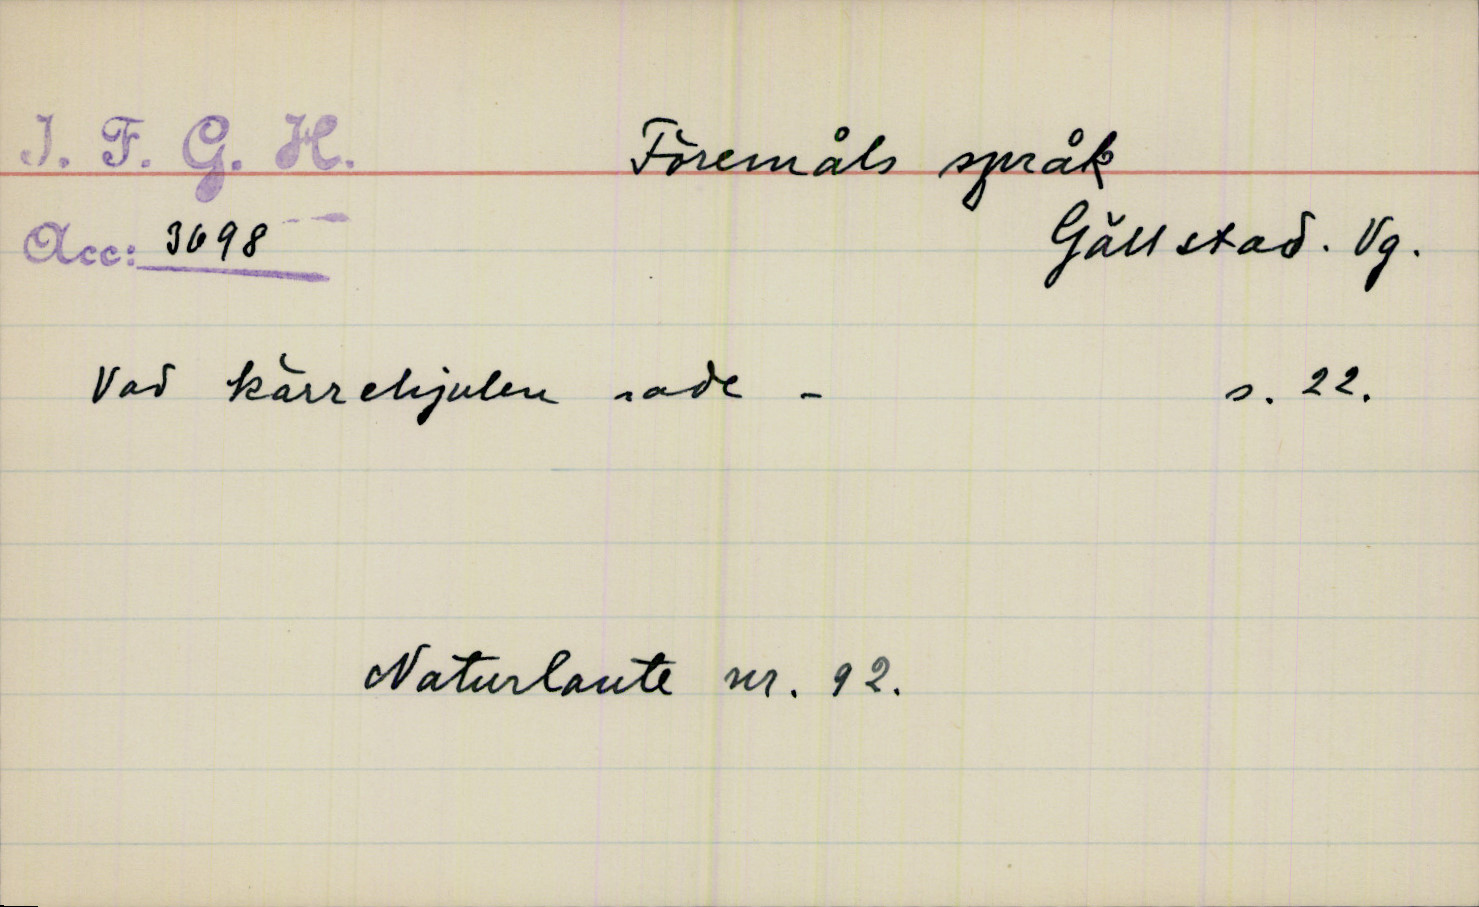 I. F. G. H.
Föremåls språk
Acc: 3698
Gällstad. Vg.
Vad kärrehjulen sade - s. 22.
Naturlaute nr. 92.